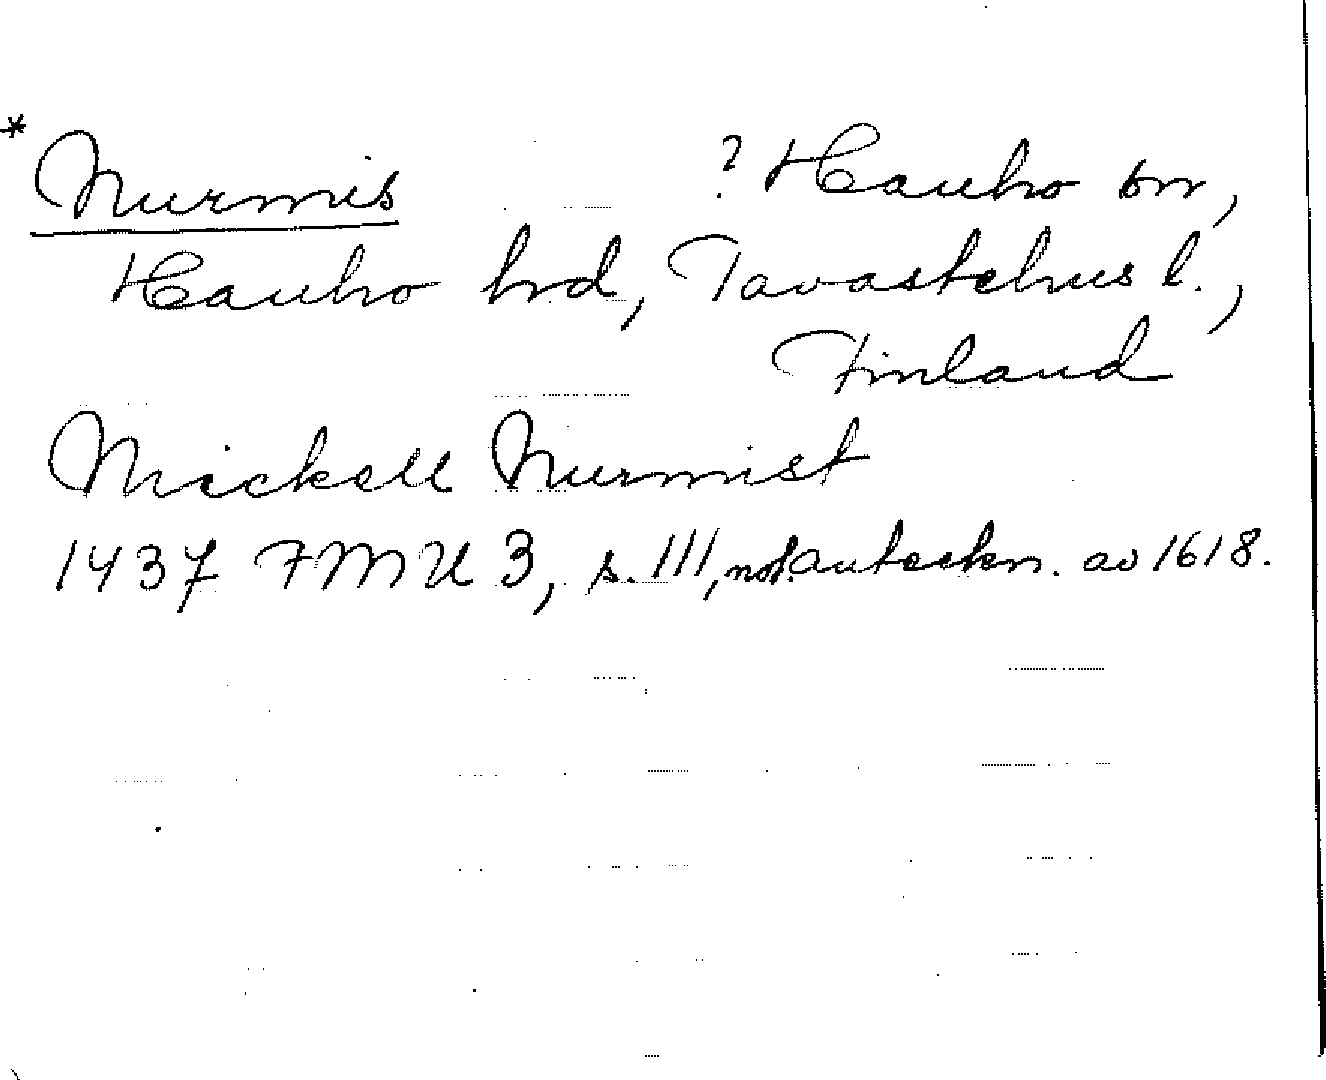 *
Nurmis ? Hauho sn,
Hauho hrd, Tavastehus l.,
Finland
Mickell Nurmist
1437 FMU 3, s. 111, not. anteckn. av 1618.